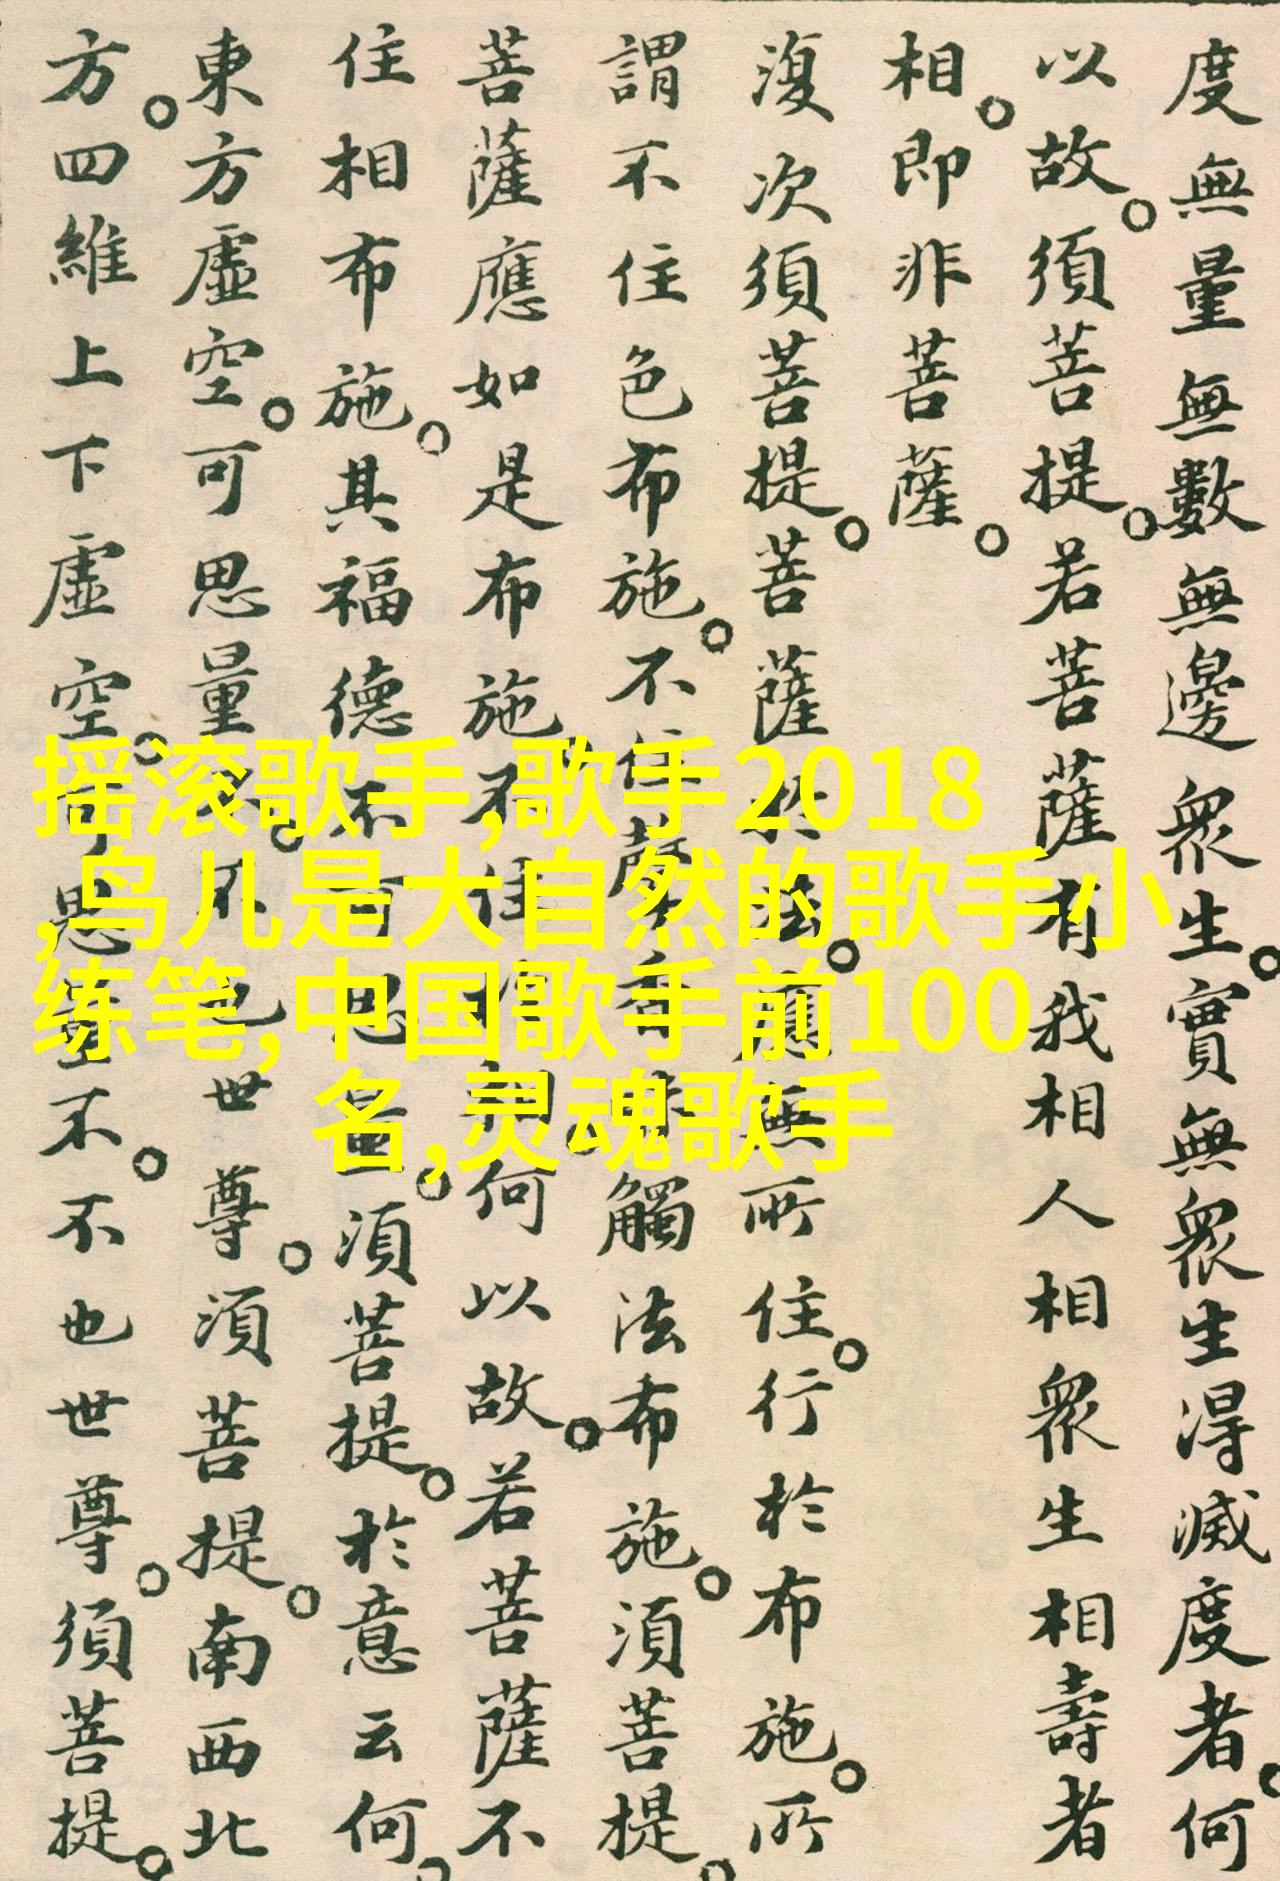 度無量無數無邊眾生。實無眾生得滅度者。何
以故。須菩提。若菩薩有我相人相眾生相壽者
相。即非菩薩。
復次須菩提。菩薩於法。應無所住。行於布施。所
謂不住色布施。不住聲香味觸法布施。須菩提。
菩薩應如是布施。不住於相。何以故。若菩薩不
住相布施。其福德不可思量。須菩提。於意云何。
東方虛空。可思量不。不也世尊。須菩提。南西北
方。四維上下虛空。可思量不。不也世尊。須菩提。
摇滚歌手,歌手2018
,鸟儿是大自然的歌手小
练笔,中国歌手前100
名,灵魂歌手